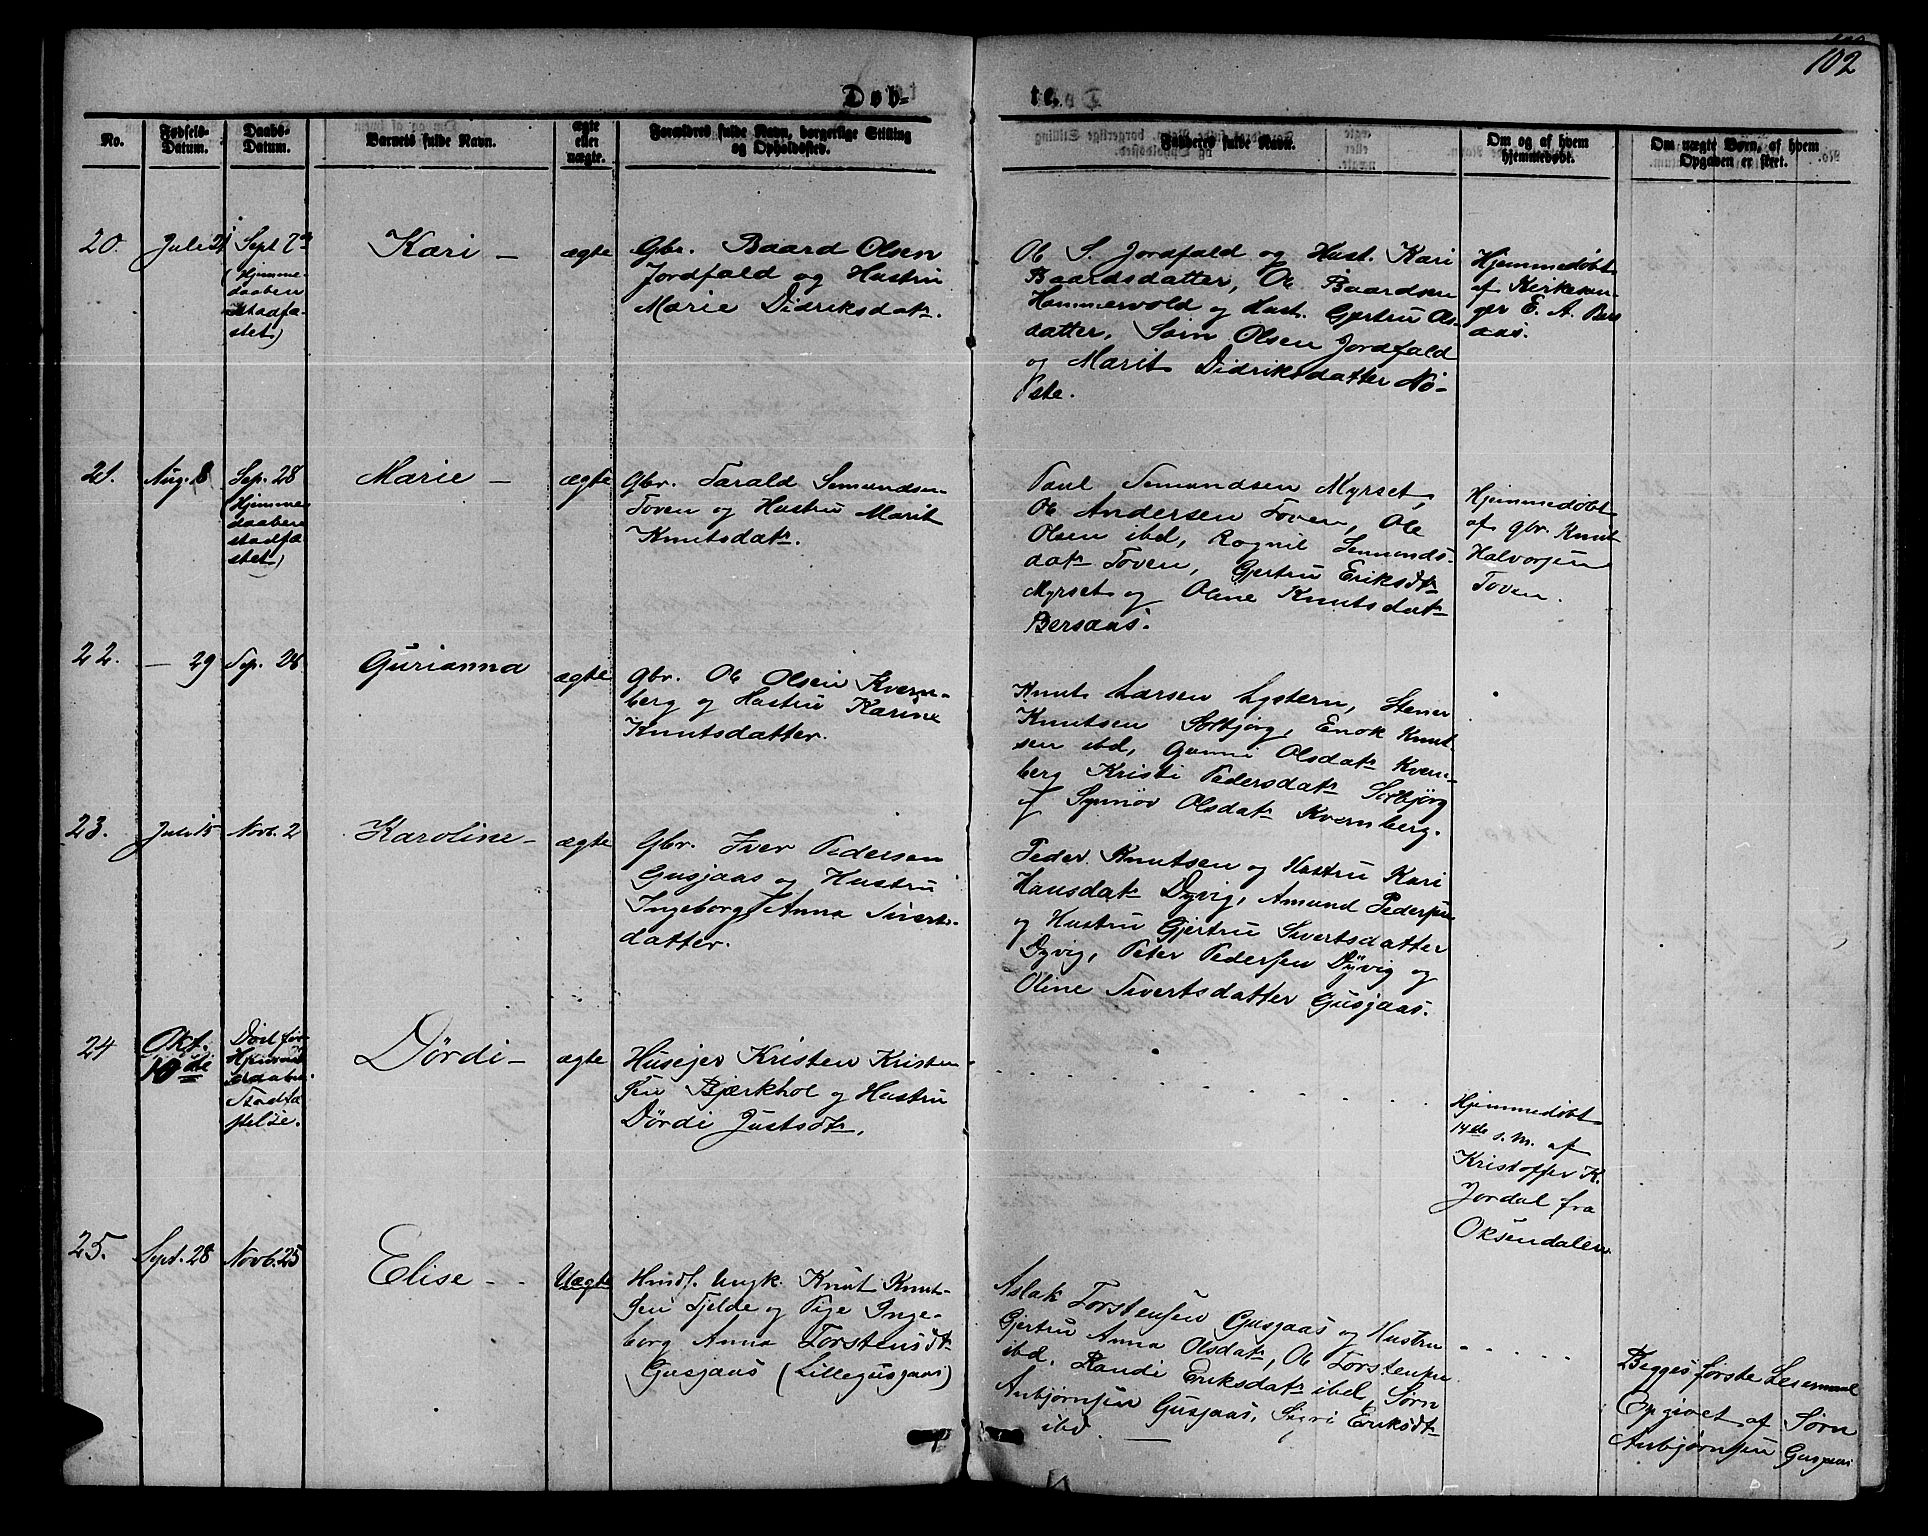 102
Døb-
te.
No.
Fødsels-
Datum.
Daabs-
Datum.
Barnets fulde Navn.
ægte
eller
uægte.
Forældres fulde Navn, borgerlige Stilling
og Opholdssted.
Fadderes fulde Navn.
Om og af hvem
hjemmedøbt.
Om uægte Børn, af hvem
Opgaven er skeet.
20.
Juli 21
Sept 7
(Hjemme-
daaben
stadfæ-
stet)
Kari –
ægte
Gbr. Baard Olsen
Jordfald og Hustru
Marie Didriksdatr.
Ole S. Jordfald og Hust. Kari
Baardsdatter, Ole Baardsen
Hammervold og Hust. Gjertru Ols-
datter, Sørn Olsen Jordfald
og Marit Didriksdatter Nø-
ste.
Hjemmedøbt
af Kirkesan-
ger E. A. Bers
aas.
21.
Aug. 8
Sep. 28
(Hjemme
daaben
stadfæ
stet)
Marie –
ægte
Gbr. Tarald Semundsen
Toven og Hustru Marit
Knutsdatr.
Paul Semundsen Myrset,
Ole Andersen Toven, Ole
Olsen ibd, Rognil Semunds-
datr Toven, Gjertru Eriksdtr
Myrset og Oline Knutsdatr
Bersaas.
Hjemmedøbt
af gbr. Knut
Halvorsen
Toven.
22.
– 29
Sep. 28
Gurianna
ægte
Gbr. Ole Olsen Kvern-
berg og Hustru Karine
Knutsdatter.
Knut Larsen Lystern, Stener
Knutsen Storbjørg, Enok Knut
sen ibd, Gunni Olsdatr Kvern-
berg Kristi Pedersdatr Storbjørg
og Synnøv Olsdatr Kvernberg.
23.
Juli 15
Novb. 2
Karoline –
ægte
Gbr. Iver Pedersen
Gusjaas og Hustru
Ingeborg Anna Siverts-
datter.
Peder Knutsen og Hustru Kari
Hansdatr Dyvig, Amund Pedersen
og Hustru Gjertru Sivertsdatter
Dyvig, Peter Pedersen Dyvig og
Oline Sivertsdatter Gusjaas.
24
Okt.
10de
Død før
Hjemme
daabens
Stadfæ
stelse.
Dørdi –
ægte
Husejer Kristen Kristen
sen Bjærkhol og Hustru
Dørdi Justsdtr.
Hjemmedøbt
14de s. M. af
Kristoffer K.
Jordal fra
Oksendalen
25.
Sept. 28
Novb. 25
Elise – –
Uægte
Husf. Ungk. Knut Knut-
sen Fjelde og Pige Inge-
borg Anna Torstensdtr
Gusjaas (Lillegusjaas)
Aslak Torstensen Gusjaas og Hustru
Gjertru Anna Olsdatr, Ole Torstensen
ibd. Randi Eriksdatr ibd, Sørn
Anbjørnsen Gusjaas, Sigri Eriksdtr
ibd. –
Begges første Leiermaal
Opgivet af Sørn
Anbjørnsen Gusjaas